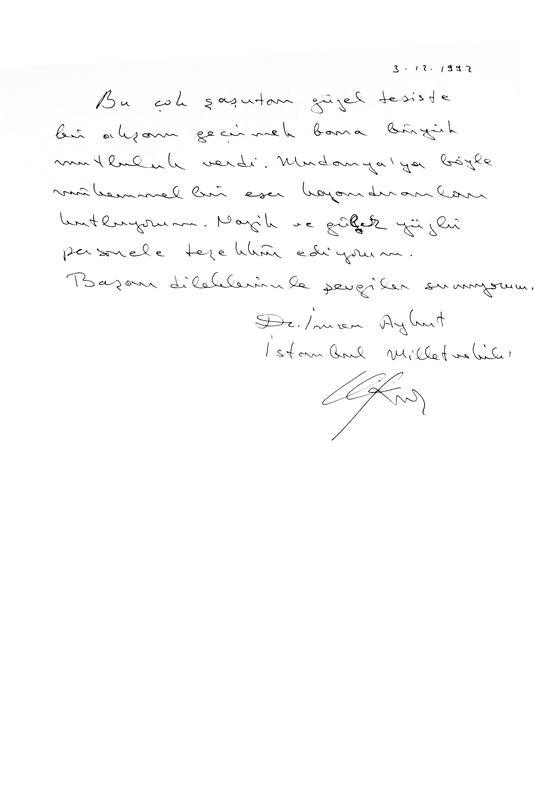 3.12.1992
Bu çok şaşırtan güzel tesiste
bir akşam geçirmek bana büyük
mutluluk verdi. Mudanya'ya böyle
mükemmel bir eser kazandıranları
kutluyorum. Nazik ve güler yüzlü
personele teşekkür ediyorum.
Başarı dileklerimle sevgiler sunuyorum.
Dr. İmren Aykut
İstanbul Milletvekili